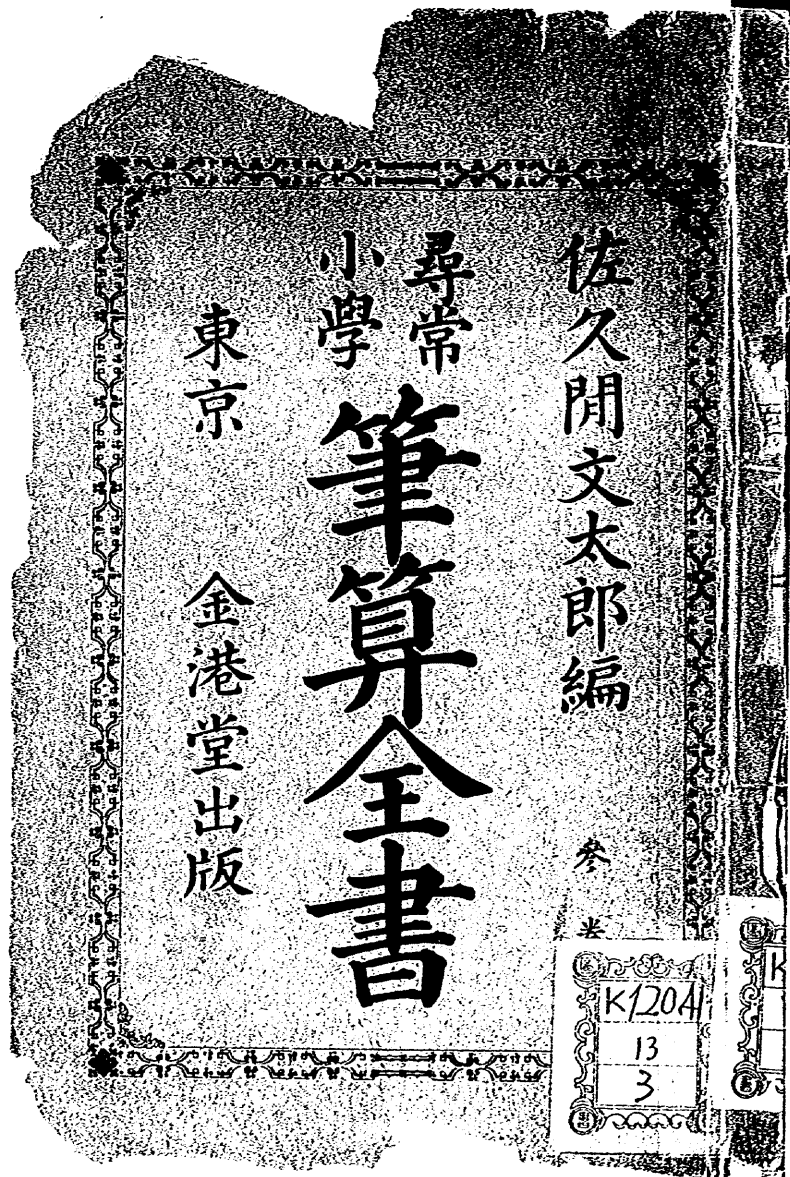 佐久間文太郎編
參卷
尋常
小學
筆算全書
東京
金港堂出版
K120A1
13
3
K